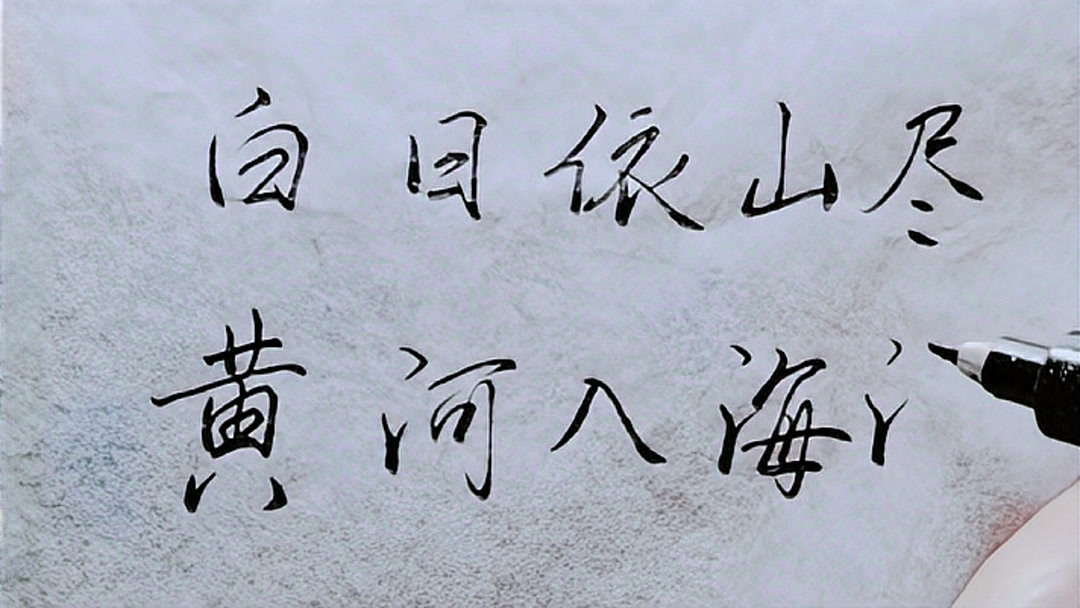 白日依山尽
黄河入海氵